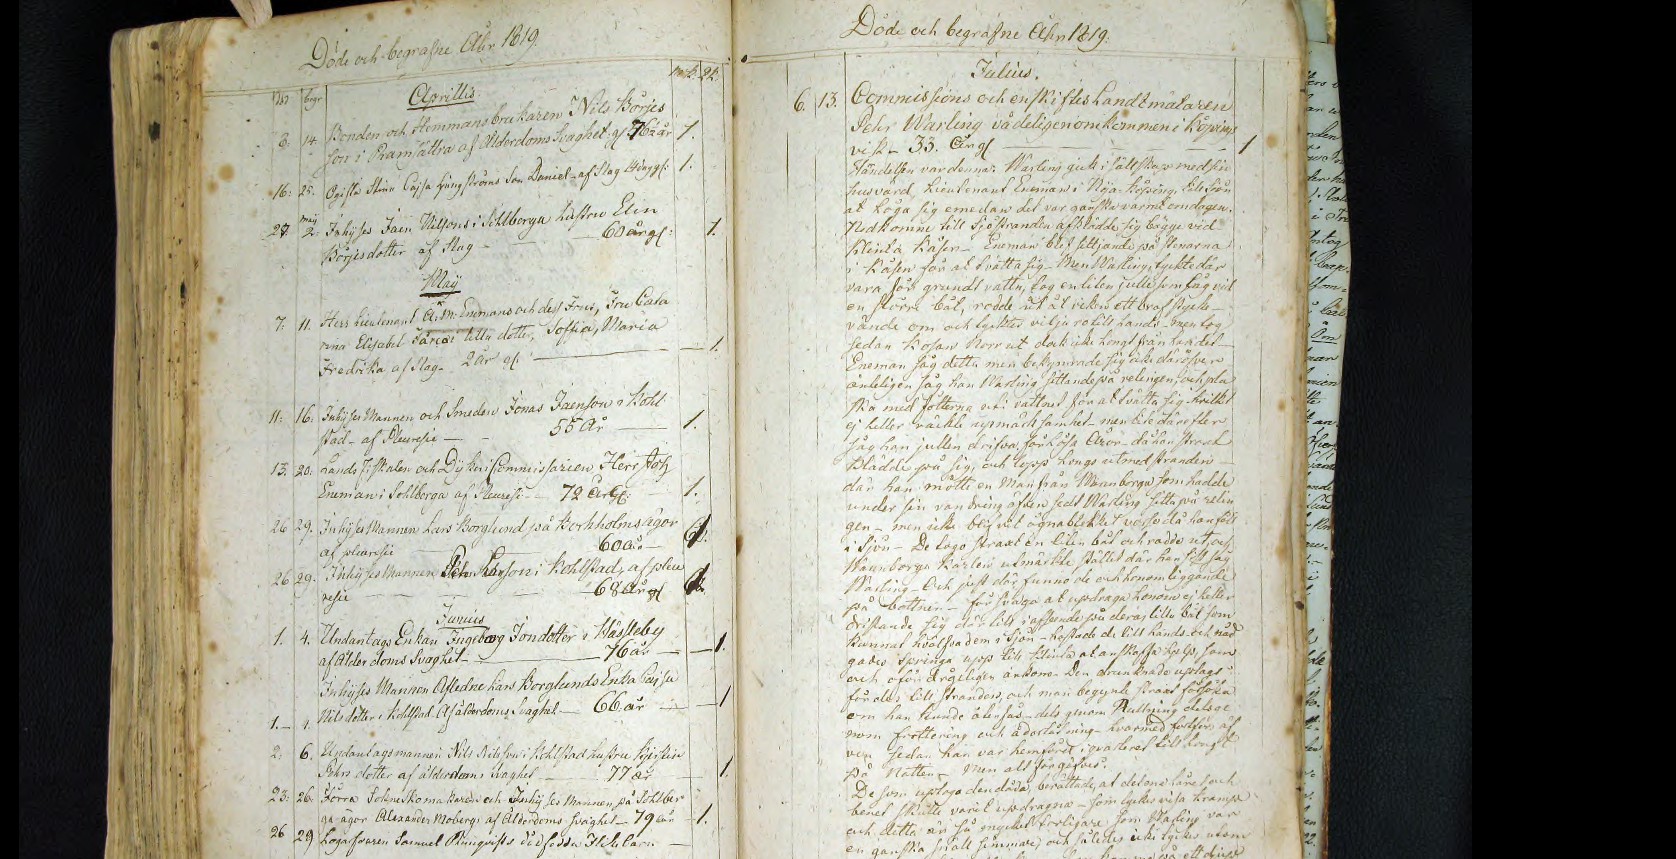 Döde och begrafne Åhr 1819.
mk. qk.
död begr
Aprillis.
8: 14. Bonden och Hemmansbrukaren Nils Börjes
son i Ramsättra af Ålderdoms Svaghet gl 76 år 1.
16: 25. Pigan Stina Cajsa Ljungströms Son Daniel af Slag 1.
maij
27. 2. Inhyses Jaen Nilsons i Solberga hustru Elin
Börjesdotter af Slag 60 år gl: 1.
Maij
7: 11. Herr Lieutenant A. M. Enemans och dess Frus, Fru Cata
rina Elisabet lilla dotter, Soffia, Maria
Fredrika af Slag 2 år gl. 1.
11: 16. Inhyses Mannen och Smeden Jonas Jaenson i Kohl
stad af Pleuresie 55 År 1.
13. 20. Lands Fiskalen och Dykeri Commissarien Herr Joh
Eneman i Solberga af Pleuresie 72 år gl: 1.
26 29. Inhyses Mannen Lars Borglund på Borkholms ägor
af pleuresie 60 år
26 29. Inhyses Mannen i Kohlstad, af pleu
resie 68 år gl
Junius
1. 4. Undantags Enkan Ingeborg Jondotter i Hässleby
af Ålderdoms Svaghet 76 år 1.
Inhyses Mannen Afledne Lars Borglunds Enka Cajsa
1. Nilsdotter i Kohlstad. Af ålderdoms Svaghet 66 år 1
2. 6. Undantagsmannen Nils Nilsson i Kohlstad hustru Kjerstin
Pehrs dotter af ålderdoms Svaghet 77 år 1.
23: 26. Förra Sokneskomakaren och Inhyses Mannen på Solber
ga ägor Alexander Moberg af Ålderdoms Svaghet 79 år 1.
26 29 Samuel Palmqvists dödfödda Flickbarn
Döde och begrafne Åhr 1819.
Julius.
6. 13. Commissions och enskiftes Landtmätaren
Pehr Warling vådeligen omkommen i Köpings
vik 33. År gl 1
Händelsen var denna: Warling gick i sällskap med sin
husvärd, Lieutenant Eneman i Köping, till sjön
at löga sig emedan det var ganska varmt om dagen.
Nedkomne till Sjöstranden afklädde sig bägge vid
Klinta Kåsen Eneman blef sittjande på stenarna
i Kåsen för at tvätta sig. Men Warling, tyckte där
vara för grundt vatn, tog en liten julle som låg vid
en större båt, rodde ut ett bra stycke
vände om och tycktes vilja ro till lands men tog
sedan Kosan Norr ut dock icke långt från landet
Eneman såg detta men bekymrade sig icke däröfver
änteligen såg han Warling sittande på relingen, och pla
ska med fötterna uti vattnet för at tvätta sig hvilket
ej heller väckte uppmärksamhet men lite därefter
såg han jullen drifva, då han strax
klädde på sig, och lopp längs utmed stranden
där han mötte en Man från Wannborga som hadde
under sin vandring äfven sedt Warling sitta på relin
gen men icke blifvit ögnablicket varse då han föll
i sjön De togo straxt en liten båt och rodde ut och
Wannborga Karlen utmärkte stället där han sitt såg
Warling Och just där funno de och honom liggande
på bottnen för svaga at updraga honom ej heller
dristande sig där till i afseende på deras lilla båt som
kunnat hvälfva dem i sjön hastade de till lands och nöd
gades springa upp till Klinta at anskaffa hjelp, som
och oförtöfveligen ankom. Den drunknade uptogs
fördes till stranden, och man begynte straxt försöka
om han kunde återfås dels genom Rullning dels ge
nom frottering och åderlåtning hvarmed fortfors äf
ven sedan han var hemförd i qvarteret till långt
på Natten Men alt förgäfves.
De som uptogo den döda, berättade, at det ena låret och
benet skulle varit updragna som tyckes visa kramp
och detta är så mycket troligare som Warling var
en ganska snäll simmare och således icke tyckes utom